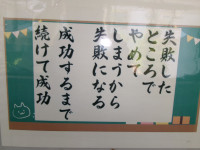 失敗した
ところで
やめて
しまうから
失敗になる
成功するまで
続けて成功